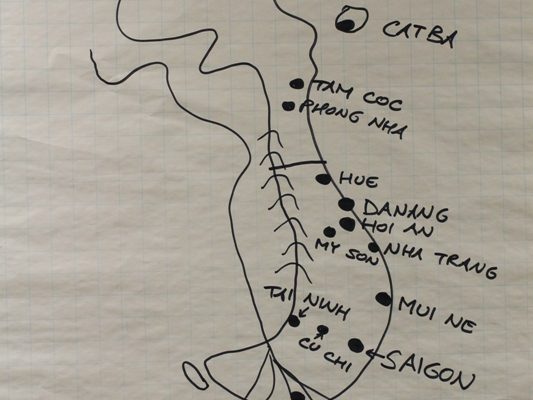 CATBA
TAM COC
PHONG NHA
HUE
DANANG
HOI AN
MY SON
NHA TRANG
TAI NINH
MUI NE
CU CHI
SAIGON